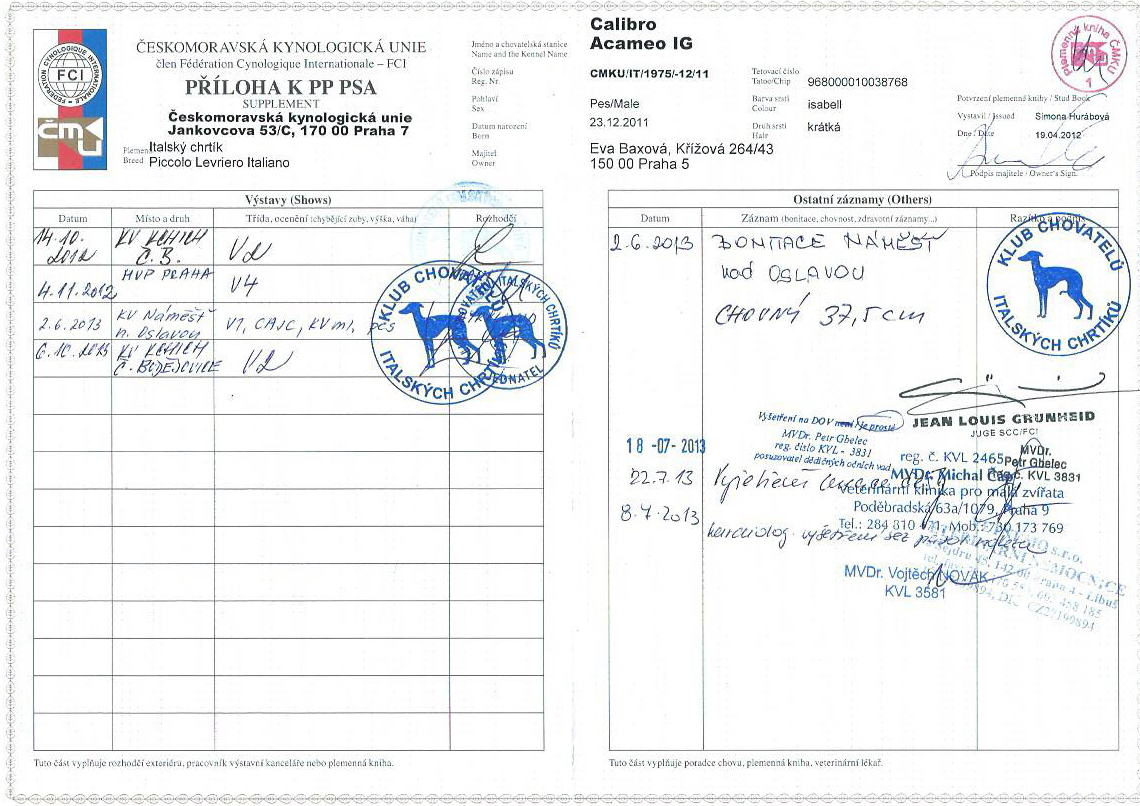 ČESKOMORAVSKÁ KYNOLOGICKÁ UNIE
člen Fédération Cynologique Internationale – FCI
PŘÍLOHA K PP PSA
SUPPLEMENT
Českomoravská kynologická unie
Jankovcova 53/C, 170 00 Praha 7
Plemeno Italský chrtík
Breed Piccolo Levriero Italiano
FEDERATION CYNOLOGIQUE INTERNATIONALE
FCI
ČMKU
Jméno a chovatelská stanice
Name and the Kennel Name
Calibro
Acameo IG
Číslo zápisu
Reg. Nr.
CMKU/IT/1975/-12/11
Pohlaví
Sex
Pes/Male
Datum narození
Born
23.12.2011
Majitel
Owner
Eva Baxová, Křížová 264/43
150 00 Praha 5
Tetovací číslo
Tatoo/Chip
968000010038768
Barva srsti
Colour
isabell
Druh srsti
Hair
krátká
Plemenná kniha ČMKU
1
Potvrzení plemenné knihy / Stud Book
Vystavil / Issued Simona Hurábová
Dne / Date 19.04.2012
Podpis majitele / Owner's Sign.
Výstavy (Shows)
Datum Místo a druh Třída, ocenění (chybějící zuby, výška, váha) Rozhodčí
14.10. 2012 KV KCHICH Č.B. V2
4.11.2012 MVP PRAHA V4
2.6.2013 KV Náměšť n. Oslavou V1, CAJC, KVml, pes
6.10.2013 KV KCHICH Č. BUDĚJOVICE V2
KLUB CHOVATELŮ
ITALSKÝCH CHRTÍKŮ
JEDNATEL
Tuto část vyplňuje rozhodčí exteriéru, pracovník výstavní kanceláře nebo plemenná kniha.
Ostatní záznamy (Others)
Datum Záznam (bonitace, chovnost, zdravotní záznamy...) Razítko a podpis
2.6.2013 BONITACE NÁMĚŠŤ
nad OSLAVOU
CHOVNÝ 37,5cm
KLUB CHOVATELŮ
ITALSKÝCH CHRTÍKŮ
JEAN LOUIS GRUNHEID
JUGE SCC/FCI
18 -07- 2013
Vyšetření na DOV není / je prosté
MVDr. Petr Gbelec
reg. číslo KVL - 3831
posuzovatel dědičných očních vad
MVDr.
Petr Gbelec
reg. č. KVL 3831
reg. č. KVL 2465
22.7.13 Vyšetření
MVDr. Michal Čáp
Veterinární klinika pro malá zvířata
Poděbradská 63a/1079, Praha 9
Tel.: 284 810 471, Mob.: 736 173 769
8.7.2013 kardiolog. vyšetření bez
MVDr. Vojtěch NOVÁK
KVL 3581
s.r.o.
NEMOCNICE
142 00 Praha 4 - Libuš
Tuto část vyplňuje poradce chovu, plemenná kniha, veterinární lékař.